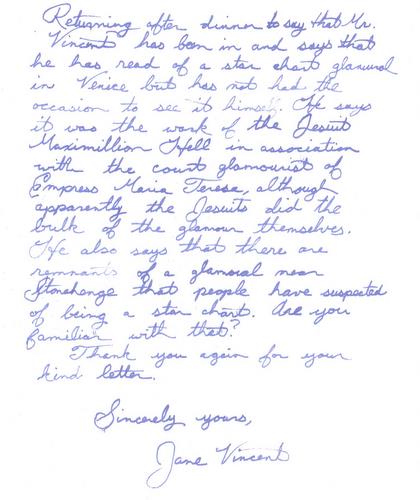 Returning after dinner to say that Mr.
Vincent has been in and says that
he has read of a star chart glamural
in Venice but has not had the
occasion to see it himself. He says
it was the work of the Jesuit
Maximillion Hell in association
with the court glamourist of
Empress Maria Teresa, although
apparently the Jesuits did the
bulk of the glamour themselves.
He also says that there are
remnants of a glamural near
Stonehenge that people have suspected
of being a star chart. Are you
familiar with that?
Thank you again for your
kind letter.
Sincerely yours,
Jane Vincent